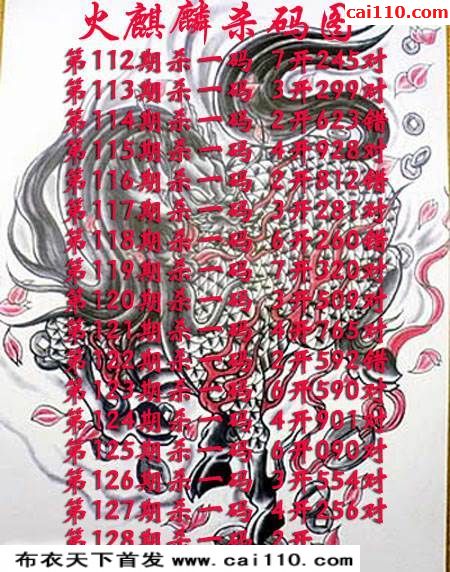 cai110.com
火麒麟杀码图
第112期杀一码 7开245对
第113期杀一码 3开299对
第114期杀一码 2开623错
第115期杀一码 4开928对
第116期杀一码 2开812错
第117期杀一码 3开281对
第118期杀一码 6开260错
第119期杀一码 7开320对
第120期杀一码 3开509对
第121期杀一码 4开765对
第122期杀一码 2开592错
第123期杀一码 6开590对
第124期杀一码 4开901对
第125期杀一码 6开090对
第126期杀一码 3开554对
第127期杀一码 4开256对
第128期杀一码 2开
布衣天下首发 www.cai110.com